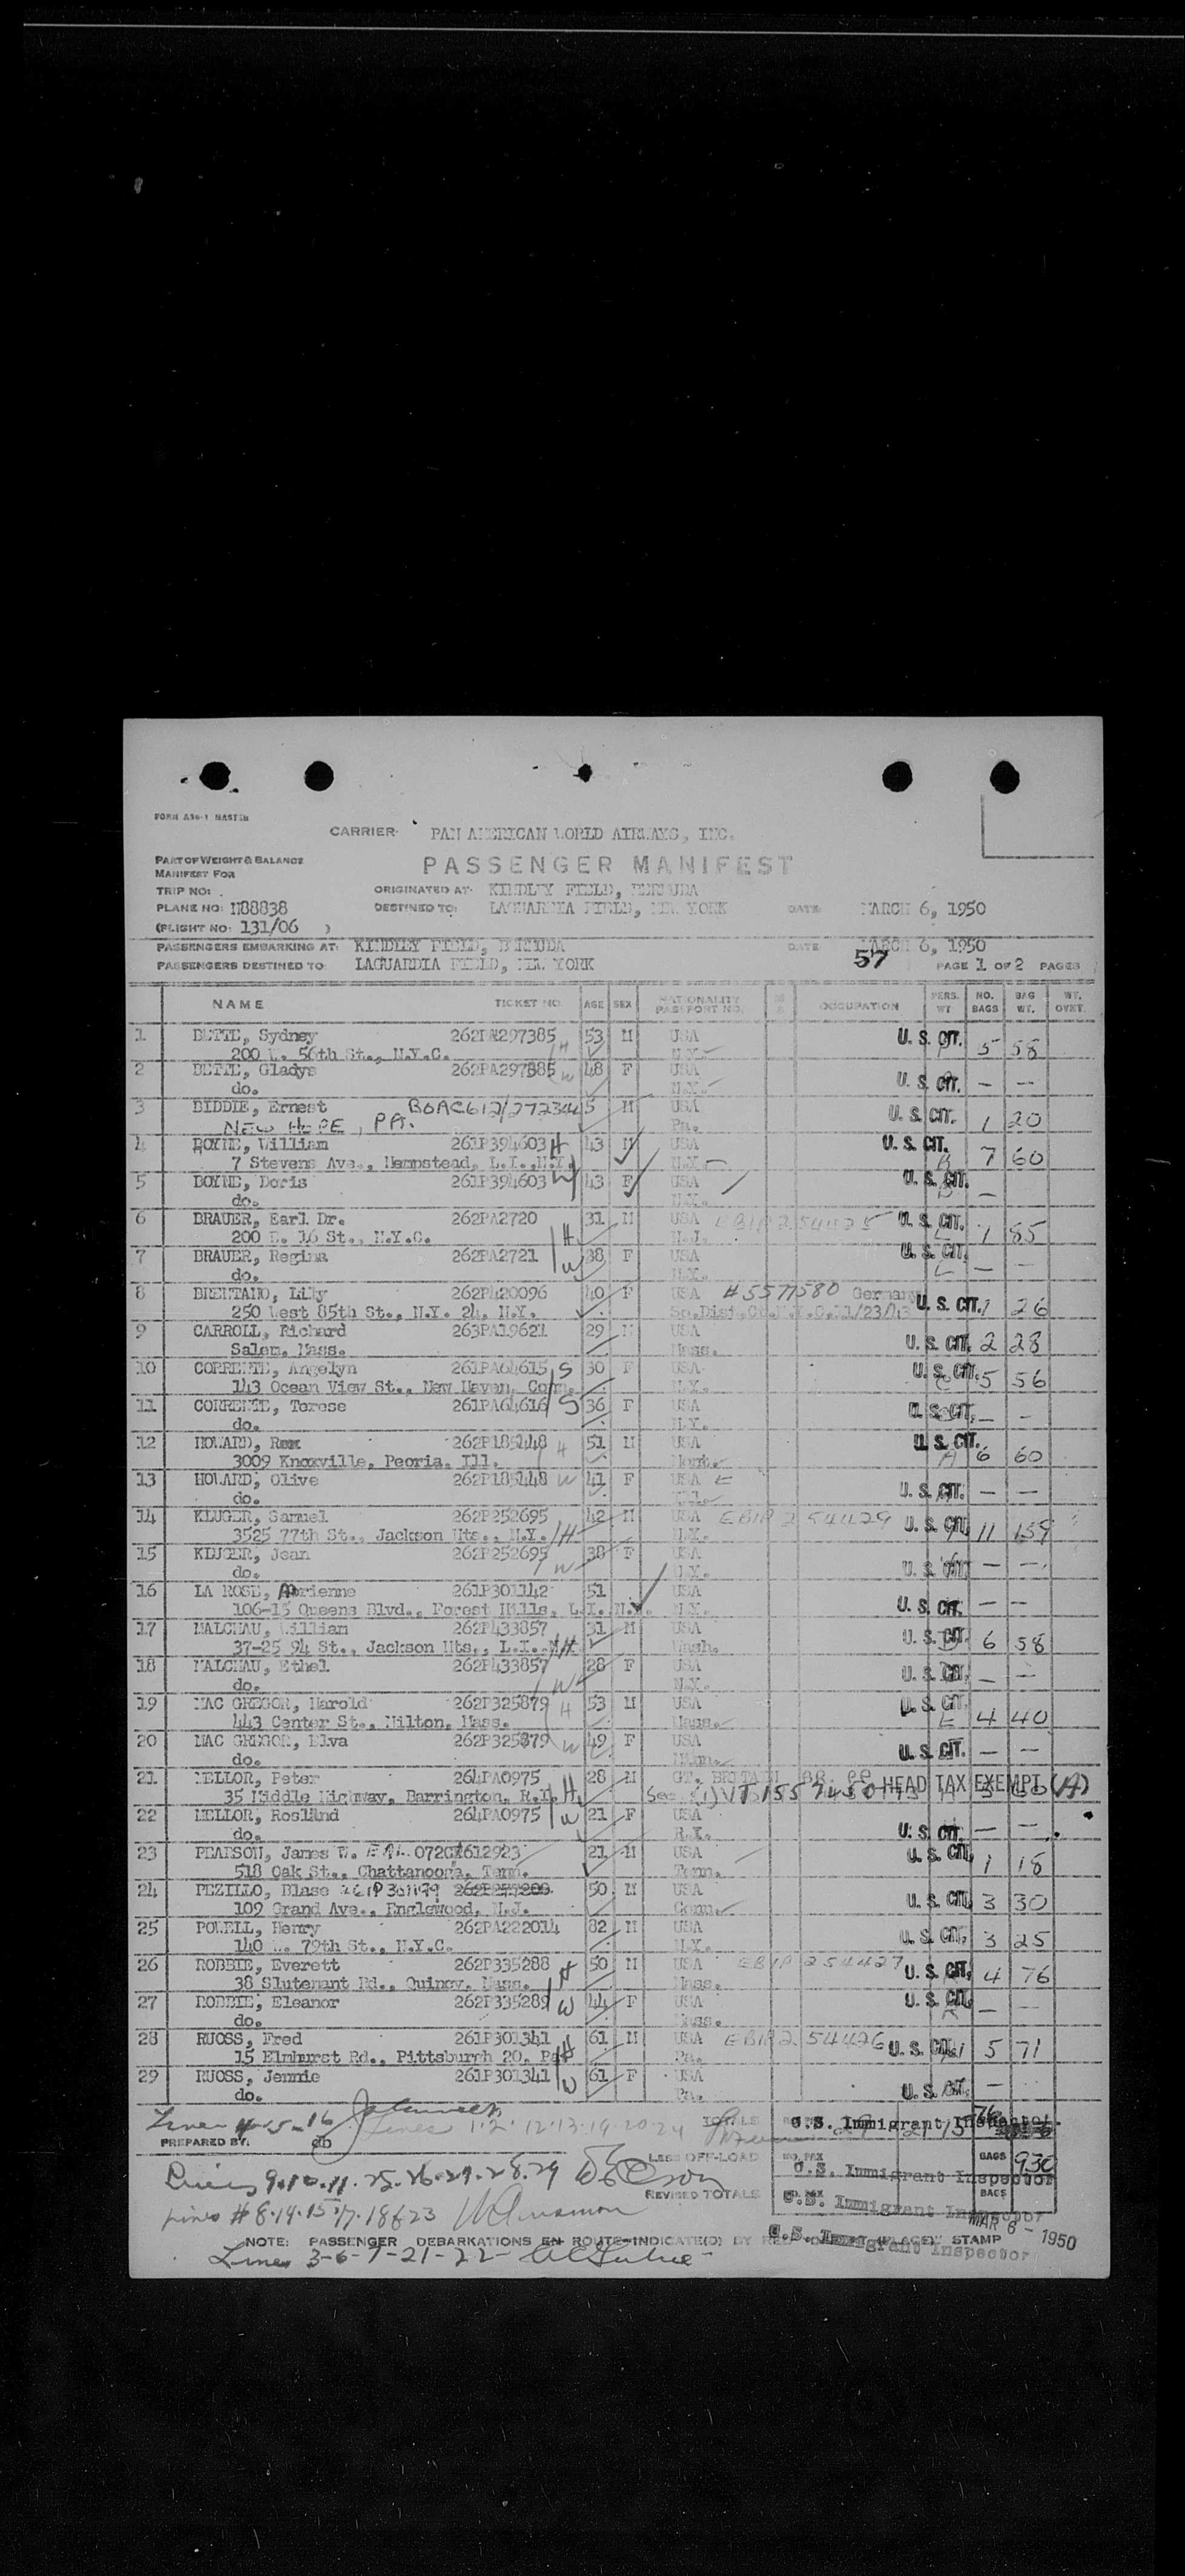 FORM A36-1 MASTER
CARRIER: PAN AMERICAN WORLD AIRWAYS, INC.
PART OF WEIGHT & BALANCE
MANIFEST FOR
PASSENGER MANIFEST
TRIP NO:
ORIGINATED AT: KINDLEY FIELD, BERMUDA
PLANE NO: N88838 DESTINED TO: LAGUARDIA FIELD, NEW YORK DATE: MARCH 6, 1950
(FLIGHT NO: 131/06 )
PASSENGERS EMBARKING AT: KINDLEY FIELD, BERMUDA DATE MARCH 6, 1950
PASSENGERS DESTINED TO LAGUARDIA FIELD, NEW YORK 57 PAGE 1 OF 2 PAGES
NAME TICKET NO. AGE SEX NATIONALITY PASSPORT NO. OCCUPATION PERS. WT NO. BAGS BAG WT. WT. OVNT.
1 Sydney 53 M USA U. S. CIT. 5 58
200 W. 56th St., N.Y.C. H N.Y.
2 Gladys 262PA297385 W 48 F USA U. S. CIT. — —
do. N.Y.
3 BIDDIE, Ernest BOAC612/272344 5 M USA U. S. CIT. 1 20
NEW HOPE, PA. Pa.
4 BOYNE, William 261P394603 H 43 M USA U. S. CIT. 7 60
7 Stevens Ave., Hempstead, L.I., N.Y. N.Y.
5 BOYNE, Doris 261P394603 W 43 F USA U. S. CIT. —
do. N.Y.
6 BRAUER, Earl Dr. 262PA2720 31 M USA EBIA 254425 U. S. CIT. 7 85
200 E. 16 St., N.Y.C. H N.J.
7 BRAUER, Regina 262PA2721 W 38 F USA U. S. CIT. — —
do. N.Y.
8 BRENTANO, Lilly 262P420096 40 F USA #5577580 Germany
250 West 85th St., N.Y. 24, N.Y. So.Dist.Ct.N.Y.C. 11/23/43 U. S. CIT. 1 26
9 CARROLL, Richard 263PA19621 29 M USA U. S. CIT. 2 28
Salem, Mass. Mass.
10 CORRENTE, Angelyn 261PA64615 S 30 F USA U. S. CIT. 5 56
143 Ocean View St., New Haven, Conn. N.Y.
11 CORRENTE, Terese 261PA64616 S 36 F USA U. S. CIT. — —
do. N.Y.
12 HOWARD, Rex 262P185448 H 51 M USA U. S. CIT. 6 60
3009 Knoxville, Peoria, Ill. Mont.
13 HOWARD, Olive 262P185448 W 41 F USA U. S. CIT. — —
do. Ill.
14 KLUGER, Samuel 262P252695 42 M USA EBIA 254429 U. S. CIT. 11 159
3525 77th St., Jackson Hts., N.Y. H N.Y.
15 KLUGER, Jean 262P252695 W 38 F USA U. S. CIT. — —
do. N.Y.
16 LA ROSE, Adrienne 261P301142 51 USA U. S. CIT. — —
106-15 Queens Blvd., Forest Hills, L.I. N.Y. N.Y.
17 MALCHAU, William 262P433857 31 M USA U. S. CIT. 6 58
37-25 94 St., Jackson Hts., L.I. H Wash.
18 MALCHAU, Ethel 262P433857 W 28 F USA U. S. CIT. — —
do. N.Y.
19 MAC GREGOR, Harold 262P325879 H 53 M USA U. S. CIT. 4 40
443 Center St., Milton, Mass. Mass.
20 MAC GREGOR, Elva 262P325879 W 49 F USA U. S. CIT. — —
do.
21 MELLOR, Peter 264PA0975 28 M GT. BRITAIN HEAD TAX EXEMPT (A)
35 Middle Highway, Barrington, R.I. H
22 MELLOR, Roslind 264PA0975 W 21 F USA U. S. CIT. — —
do. R.I.
23 PEARSON, James W. 21 M USA U. S. CIT. 1 18
518 Oak St., Chattanooga, Tenn. Tenn.
24 PEZILLO, Blase 261P301199 50 M USA U. S. CIT. 3 30
109 Grand Ave., Englewood, N.J. Conn.
25 POWELL, Henry 262PA222014 82 M USA U. S. CIT. 3 25
140 W. 79th St., N.Y.C. N.Y.
26 ROBBIE, Everett 262P335288 H 50 M USA EBIA 254427 U. S. CIT. 4 76
38 Slutemant Rd., Quincy, Mass. Mass.
27 ROBBIE, Eleanor 262P335289 W 44 F USA U. S. CIT. — —
do. Mass.
28 RUOSS, Fred 261P301341 61 M USA EBIA 254426 U. S. CIT. 5 71
15 Elmhurst Rd., Pittsburgh 20, Pa. H Pa.
29 RUOSS, Jennie 261P301341 W 61 F USA U. S. CIT. —
do. Pa.
Lines 4-5-16 Lines 1.2.12.13.19.20.24 TOTALS U.S. Immigrant Inspector
PREPARED BY: db
LESS OFF-LOAD BAGS 930
Lines 9.10.11.25.26.27.28.29 U.S. Immigrant Inspector
REVISED TOTALS BAGS
Lines #8.14.15.17.18&23 U.S. Immigrant Inspector
MAR 6 - 1950
NOTE: PASSENGER DEBARKATIONS EN ROUTE INDICATED BY RED STAMP
U.S. Immigrant Inspector
Lines 3-6-7-21-22-